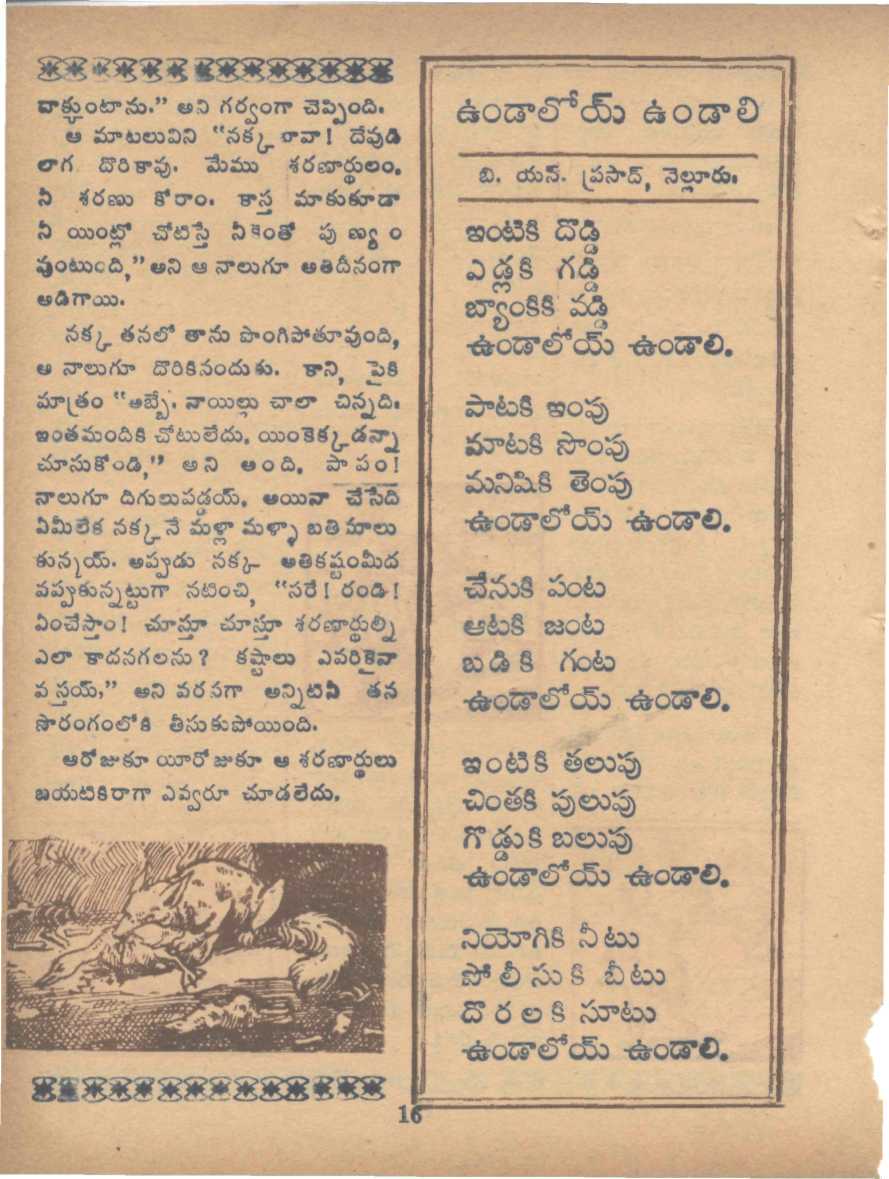 వాక్కుంటాను.” అని గర్వంగా చెప్పింది.
ఆ మాటలువిని “నక్క రావా! దేవుడి
లాగ దొరికావు. మేము శరణార్థులం.
నీ శరణు కోరాం. కాస్త మాకుకూడా
నీ యింట్లో చోటిస్తే నీకెంతో పుణ్యం
వుంటుంది,” అని ఆ నాలుగూ అతిదీనంగా
అడిగాయి.
నక్క తనలో తాను పొంగిపోతూవుంది,
ఆ నాలుగూ దొరికినందుకు. కాని, పైకి
మాత్రం “అబ్బే, నాయిల్లు చాలా చిన్నది.
ఇంతమందికి చోటులేదు, యింకెక్కడన్నా
చూసుకోండి,” అని అంది, పాపం!
నాలుగూ దిగులుపడ్డయ్, అయినా చేసేది
ఏమీలేక నక్కనే మళ్లా మళ్ళా బతిమాలు
కున్నయ్. అప్పుడు నక్క అతికష్టంమీద
వప్పుకున్నట్టుగా నటించి, “సరే! రండి!
ఏంచేస్తాం! చూస్తూ చూస్తూ శరణార్థుల్ని
ఎలా కాదనగలను? కష్టాలు ఎవరికైనా
వస్తయ్,” అని వరసగా అన్నిటినీ తన
సొరంగంలోకి తీసుకుపోయింది.
ఆరోజుకూ యీరోజుకూ ఆ శరణార్థులు
బయటికిరాగా ఎవ్వరూ చూడలేదు.
ఉండాలోయ్ ఉండాలి
బి. యన్. ప్రసాద్, నెల్లూరు.
ఇంటికి దొడ్డి
ఎడ్లకి గడ్డి
బ్యాంకికి వడ్డి
ఉండాలోయ్ ఉండాలి.
పాటకి ఇంపు
మాటకి సొంపు
మనిషికి తెంపు
ఉండాలోయ్ ఉండాలి.
చేనుకి పంట
ఆటకి జంట
బడికి గంట
ఉండాలోయ్ ఉండాలి.
ఇంటికి తలుపు
చింతకి పులుపు
గొడ్డుకి బలుపు
ఉండాలోయ్ ఉండాలి.
నియోగికి నీటు
పోలీసుకి బీటు
దొరలకి సూటు
ఉండాలోయ్ ఉండాలి.
16